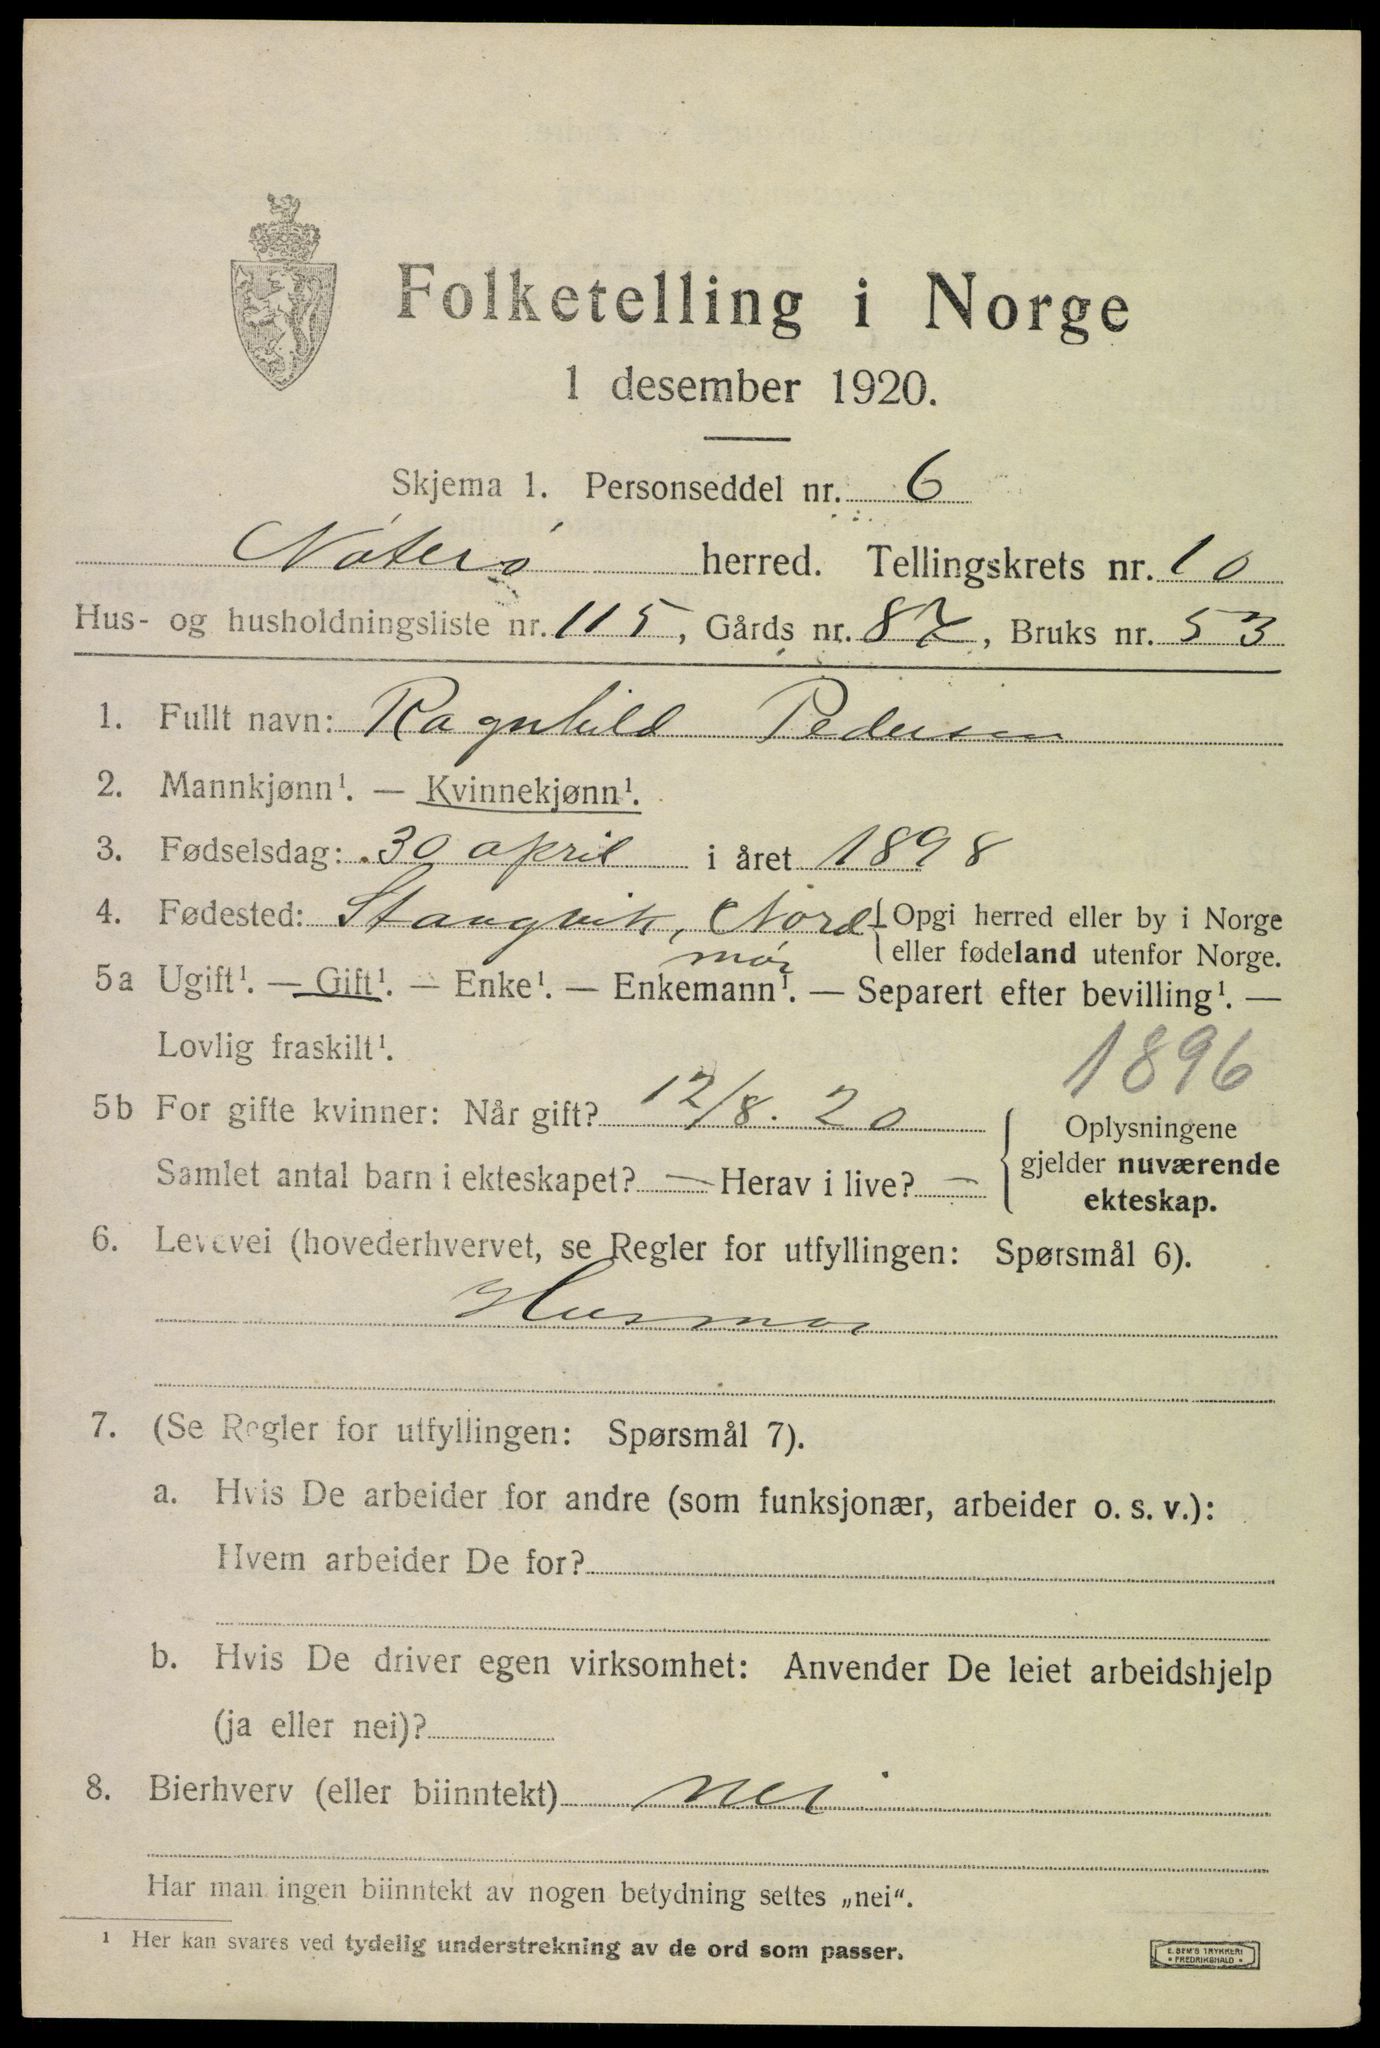 Folketelling i Norge
1 desember 1920.
Skjema 1. Personseddel nr. 6
Nøterø herred. Tellingskrets nr. 10
Hus- og husholdningsliste nr. 115, Gårds nr. 87, Bruks nr. 53
1. Fullt navn: Ragnhild Pedersen
2. Mannkjønn¹. — Kvinnekjønn¹.
3. Fødselsdag: 30 april i året 1898
4. Fødested: Stangvik, Nord- { Opgi herred eller by i Norge
mør eller fødeland utenfor Norge.
5a Ugift¹. — Gift¹. — Enke¹. — Enkemann¹. — Separert efter bevilling¹. —
Lovlig fraskilt¹.
1896
5b For gifte kvinner: Når gift? 12/8. 20
Samlet antal barn i ekteskapet? — Herav i live? —
{ Oplysningene
gjelder nuværende
ekteskap.
6. Levevei (hovederhvervet, se Regler for utfyllingen: Spørsmål 6).
Husmor
7. (Se Regler for utfyllingen: Spørsmål 7).
a. Hvis De arbeider for andre (som funksjonær, arbeider o. s. v.):
Hvem arbeider De for?
b. Hvis De driver egen virksomhet: Anvender De leiet arbeidshjelp
(ja eller nei)?
8. Bierhverv (eller biinntekt) nei
Har man ingen biinntekt av nogen betydning settes „nei“.
¹ Her kan svares ved tydelig understrekning av de ord som passer.
E. SEM'S TRYKKERI
• FREDRIKSHALD •